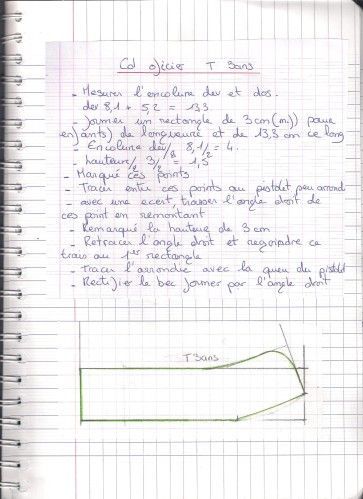 Col oficier T 3ans
- Mesurer l'encolure dev et dos.
dev 8,1 + 5,2 = 13,3
- former un rectangle de 3cm (m.)) pour
enfants) de longueure et de 13,3 cm ce long
- Encolure dev/2 8,1/2 = 4.
- hauteur/2 3/2 = 1,5
- Marqué ces points
- Tracer entre ces points au pistolet peu arrond
- avec une ecert, trasser l'angle droit de
ces point en remontant
- Remarqué la hauteur de 3 cm
- Retracer l'angle droit et regoindre ce
trais au 1er rectangle
- tracer l'arrondie avec la queu du pistolet
- Rectifier le bec former par l'angle droit
T 3ans